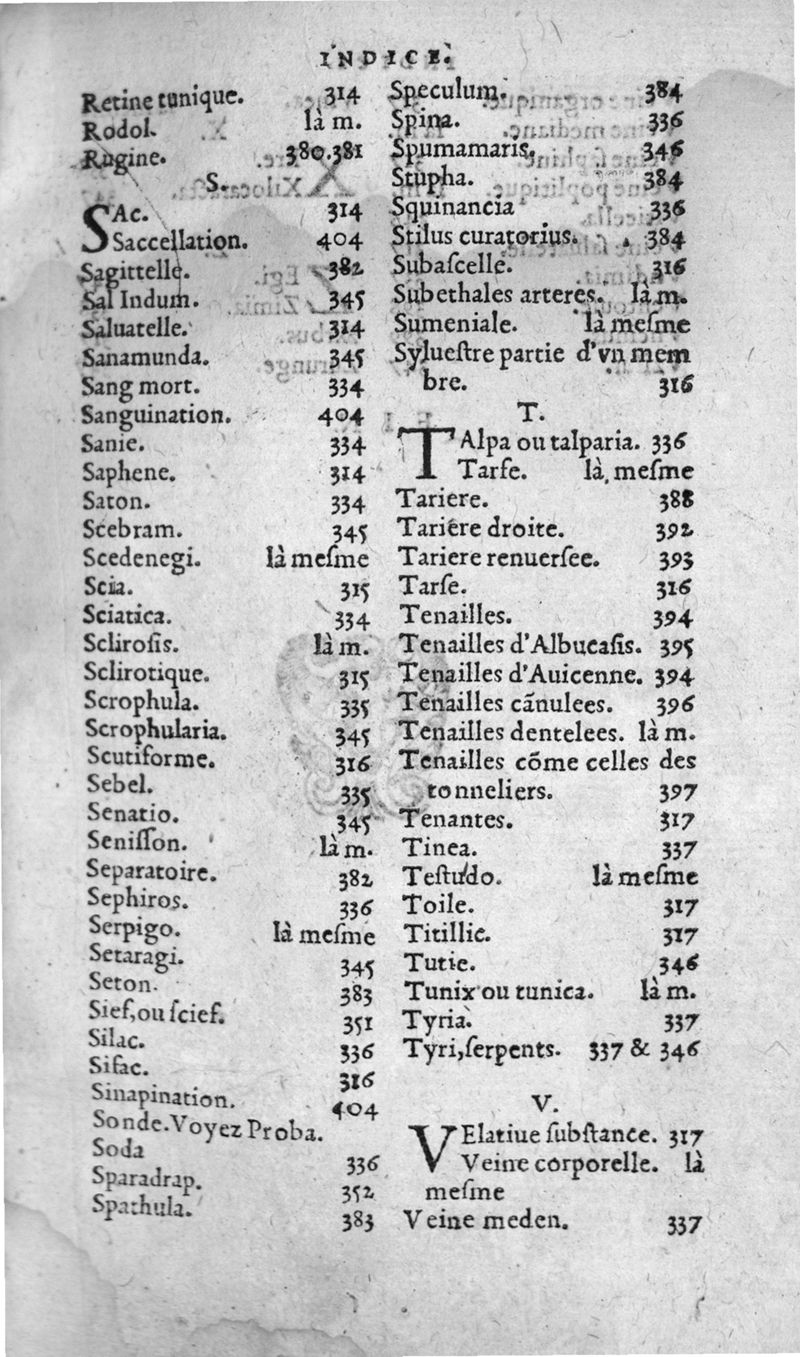 INDICE.
Retine tunique. 314
Rodol. là m.
Rugine. 380.381
S.
SAc. 314
Saccellation. 404
Sagittelle. 382
Sal Indum. 345
Saluatelle. 314
Sanamunda. 345
Sang mort. 334
Sanguination. 404
Sanie. 334
Saphene. 314
Saton. 334
Scebram. 345
Scedenegi. là meſme
Scia. 315
Sciatica. 334
Scliroſis. là m.
Sclirotique. 315
Scrophula. 335
Scrophularia. 345
Scutiforme. 316
Sebel. 335
Senatio. 345
Seniſſon. là m.
Separatoire. 382
Sephiros. 336
Serpigo. là meſme
Setaragi. 345
Seton. 383
Sief, ou ſcief. 351
Silac. 336
Sifac. 316
Sinapination. 404
Sonde. Voyez Proba.
Soda 336
Sparadrap. 352
Spathula. 383
Speculum. 384
Spina. 336
Spumamaris. 346
Stupha. 384
Squinancia 336
Stilus curatorius. 384
Subaſcelle. 316
Subethales arteres. là m.
Sumeniale. là meſme
Sylueſtre partie d'vn mem
bre. 316
T.
TAlpa ou talparia. 336
Tarſe. là meſme
Tariere. 388
Tariere droite. 392
Tariere renuerſee. 393
Tarſe. 316
Tenailles. 394
Tenailles d'Albucaſis. 395
Tenailles d'Auicenne. 394
Tenailles cānulees. 396
Tenailles dentelees. là m.
Tenailles cōme celles des
tonneliers. 397
Tenantes. 317
Tinea. 337
Teſtudo. là meſme
Toile. 317
Titillic. 317
Tutie. 346
Tunix ou tunica. là m.
Tyria. 337
Tyri, ſerpents. 337 & 346
V.
VElatiue ſubſtance. 317
Veine corporelle. là
meſme
Veine meden. 337